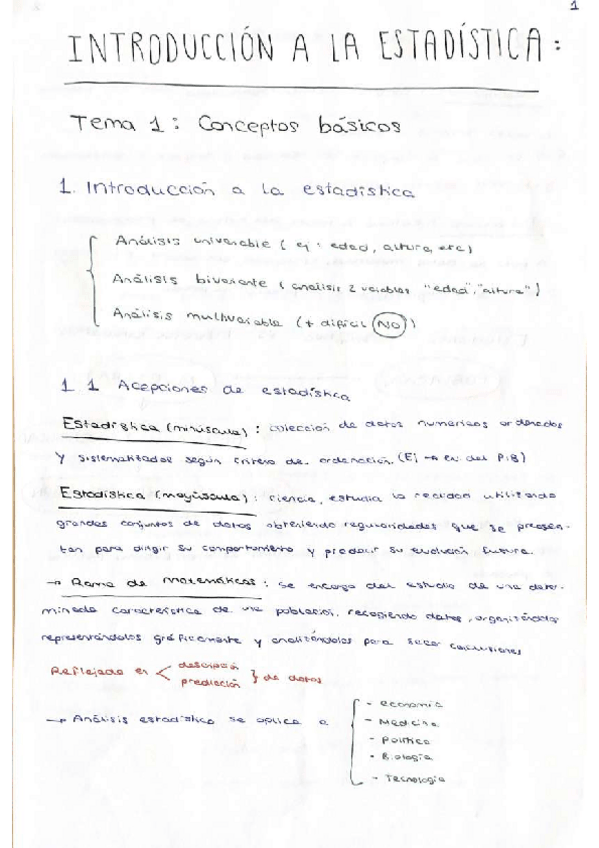 1
INTRODUCCIÓN A LA ESTADÍSTICA:
Tema 1: Conceptos básicos
1. Introducción a la estadística
Análisis univariable (ej: edad, altura, etc)
Análisis bivariante (analisis 2 variables "edad", "altura")
Análisis multivariable (+ difícil NO)
1.1 Acepciones de estadística
Estadística (minúscula): colección de datos numéricos ordenados
y sistematizados según criterio de ordenación. (Ej → del PIB)
Estadística (mayúscula): ciencia, estudia la realidad utilizando
grandes conjuntos de datos obteniendo regularidades que se presen-
tan para dirigir su comportamiento y predecir su evolución futura.
→ Rama de matemáticas: se encarga del estudio de una deter-
minada característica de una población, recogiendo datos, organizándolos
representándolos gráficamente y analizándolos para sacar conclusiones
Reflejada en < descripción
predicción } de datos
→ Análisis estadístico se aplica a
- economía
- Medicina
- Política
- Biología
- Tecnología